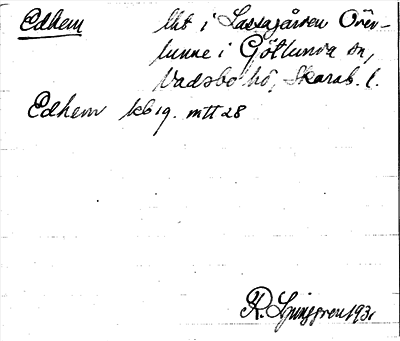 Edhem lht i Lassagården Över-
lunne i Götlunda sn,
Vadsbo hd, Skarab. l.
Edhem kb 19. mtt 28
R. Ljunggren 1931